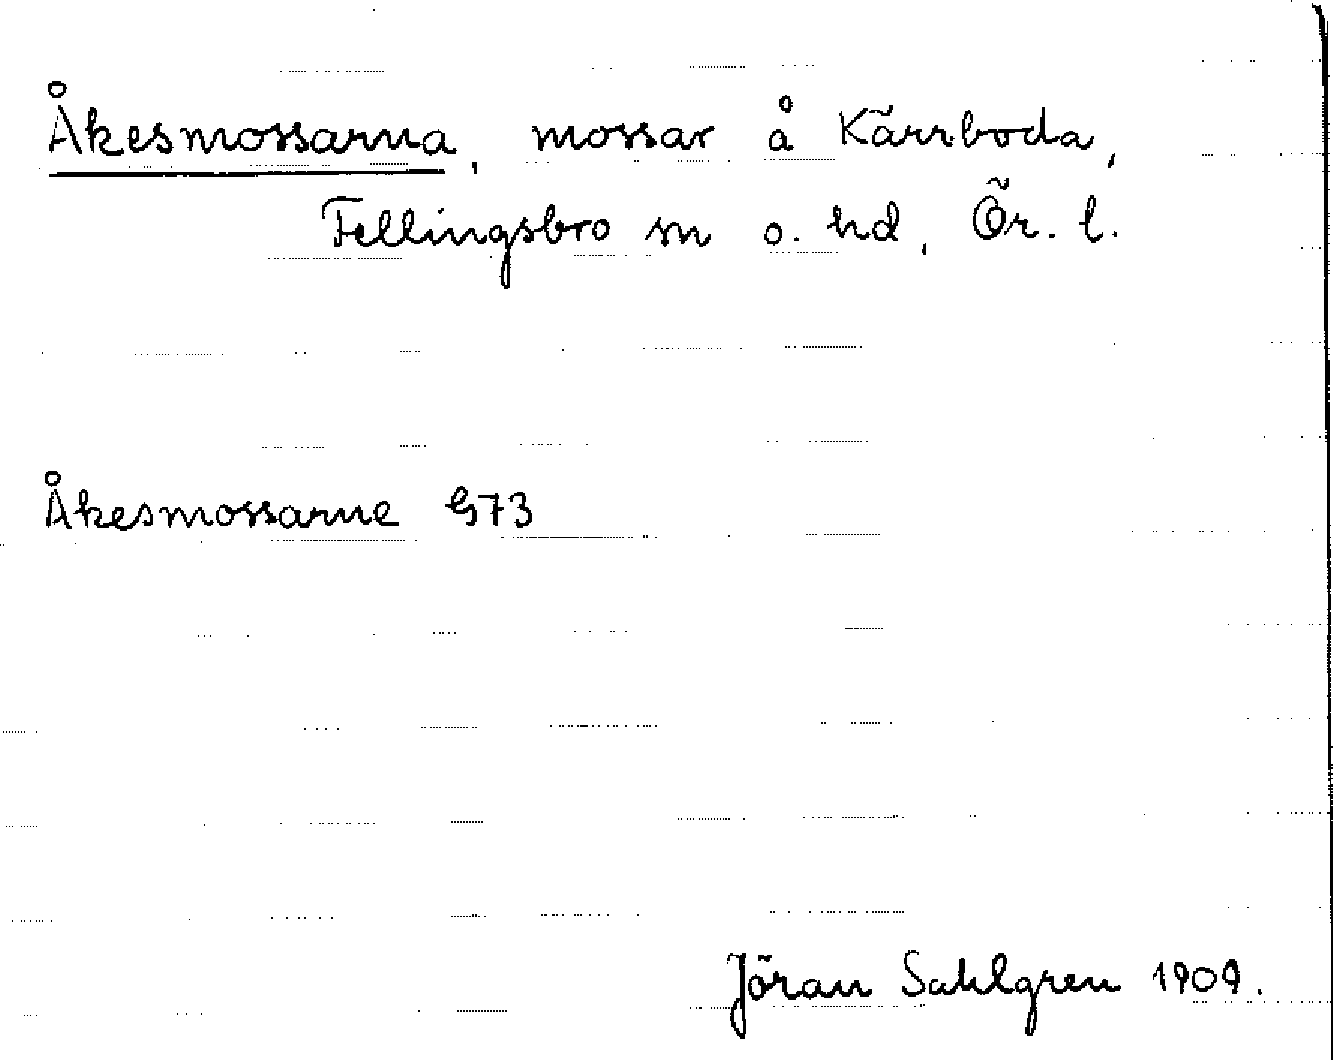 Åkesmossarna, mossar å Kärrboda,
Fellingsbro sn o. hd, Ör. l.
Åkesmossarne G73
Jöran Sahlgren 1909.